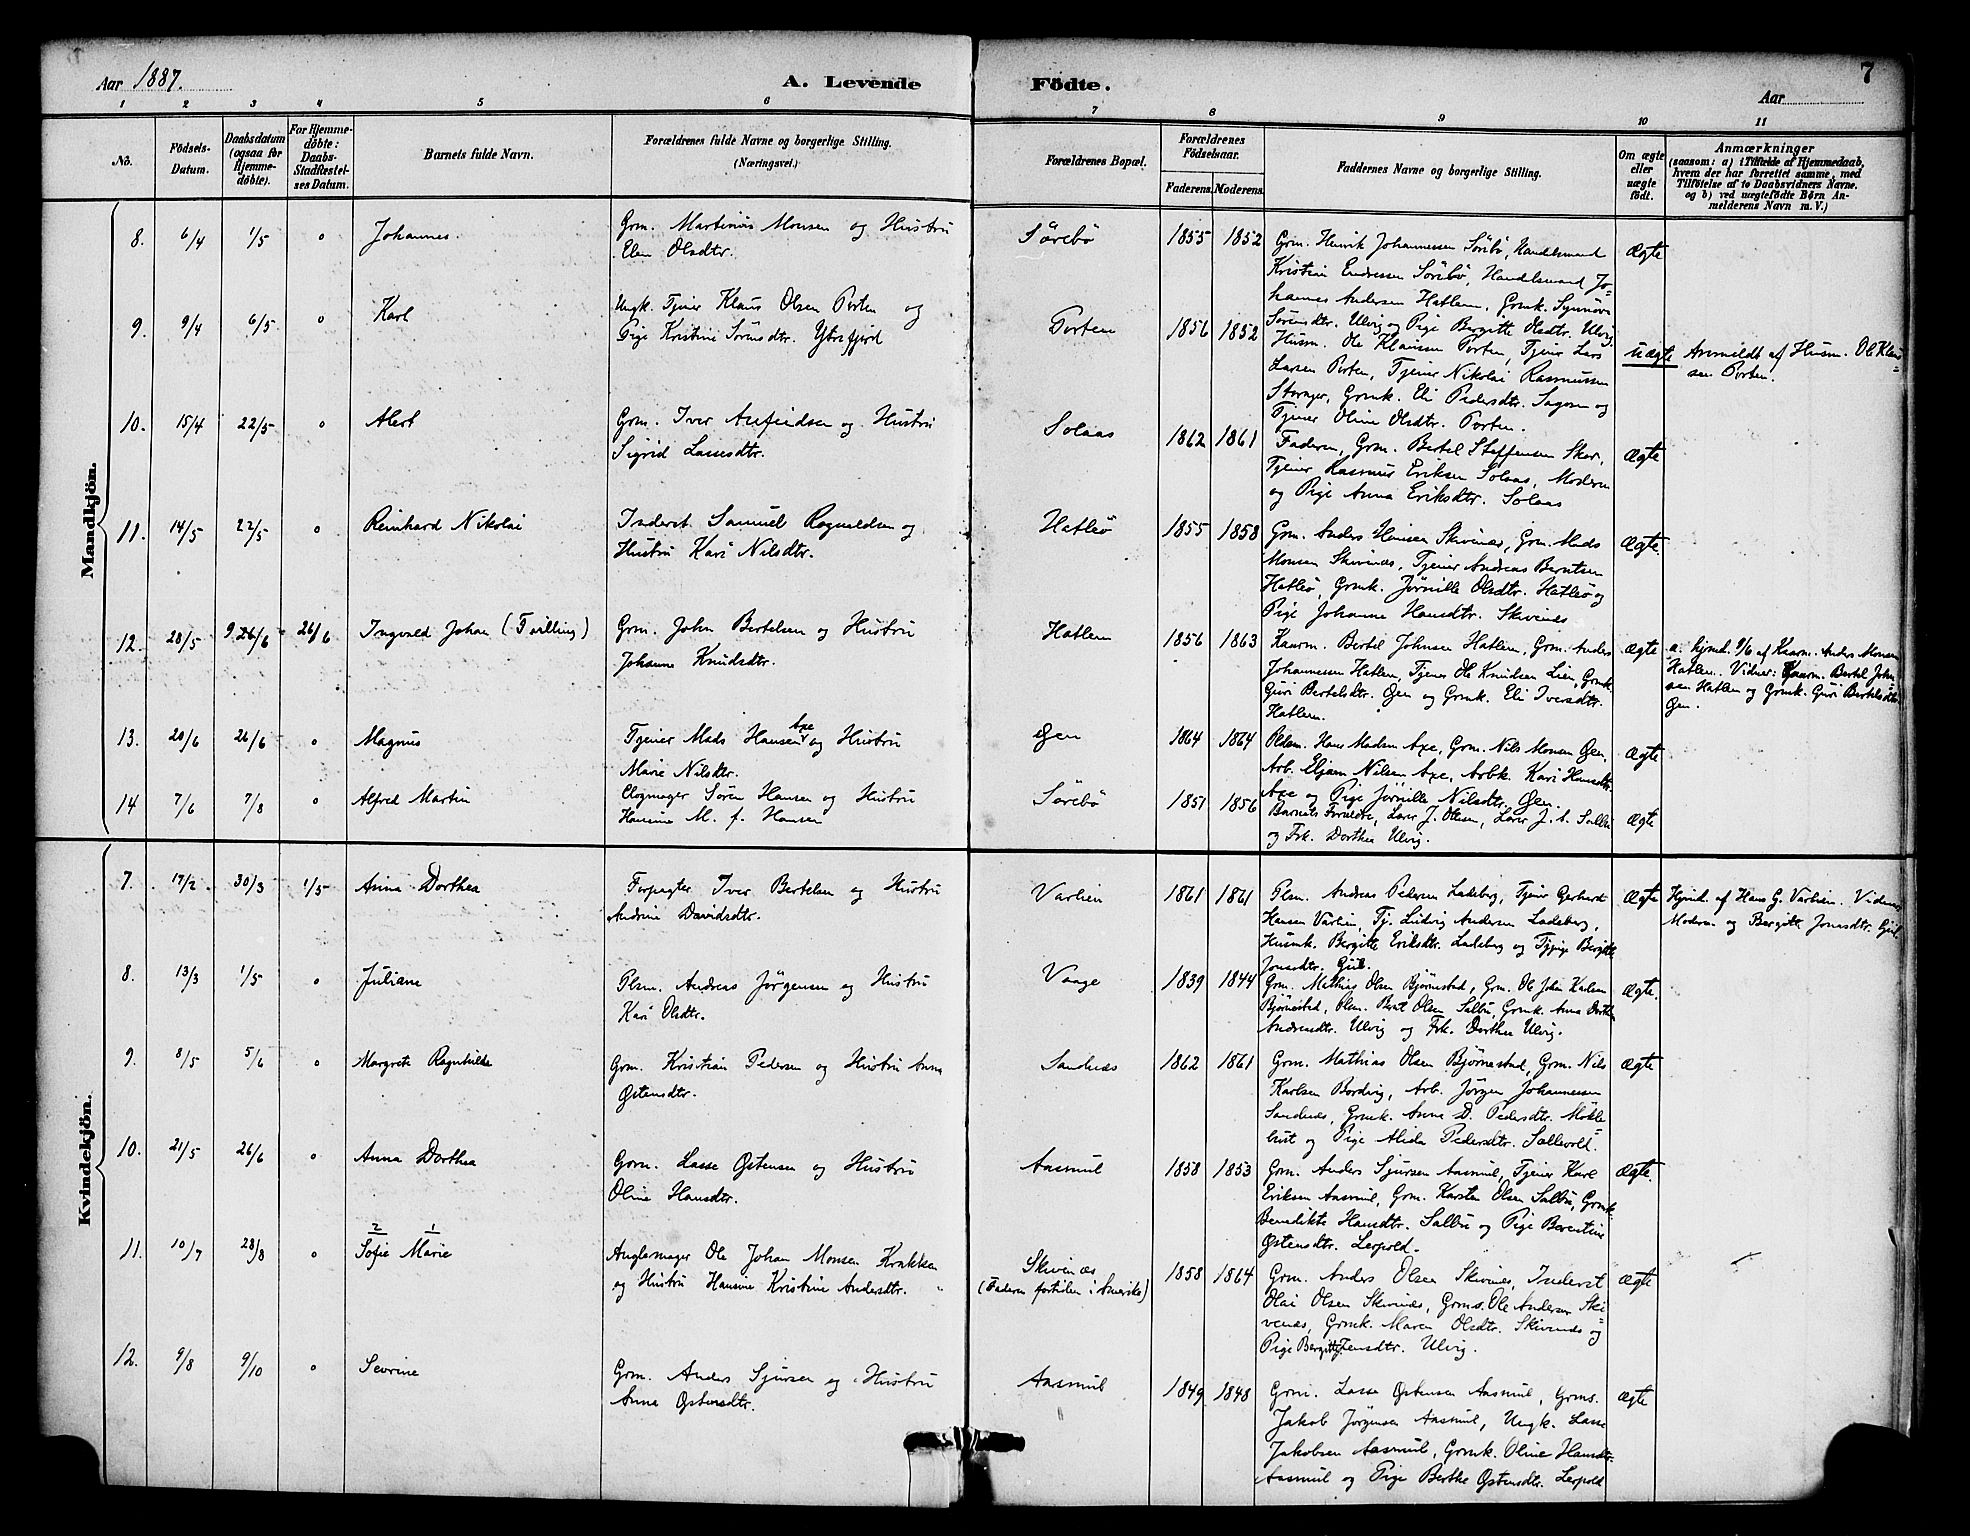 Aar 1887.
A. Levende Födte.
7
Aar
1 2 3 4 5 6 7 8 9 10 11
No.
Födsels-Datum.
Daabsdatum (ogsaa for Hjemme-döbte).
For Hjemme-döbte: Daabs-Stadfæstel-ses Datum.
Barnets fulde Navn.
Forældrenes fulde Navne og borgerlige Stilling.
(Næringsvei.)
Forældrenes Bopæl.
Forældrenes Födselsaar.
Faderens. Moderens.
Faddernes Navne og borgerlige Stilling.
Om ægte eller uægte födt.
Anmærkninger
(saasom: a) i Tilfælde af Hjemmedaab,
hvem der har forrettet samme, med
Tilföielse af to Daabsvidners Navne.
og b) ved uægtefödte Börn An-
melderens Navn m. V.)
Mandkjön.
8. 6/4 1/5 o Johannes.
Grm. Martinus Monsen og Hustru
Elen Olsdtr.
Sørebø 1855 1852
Grm. Henrik Johannessen Sørebø, Handelsmand
Kristian Endresen Sørebø, Handelsmand Jo=
hannes Andersen Hatlem, Grmk. Synnøve
Sørensdtr. Ulvig og Pige Bergitte Olsdtr. Ulvig
Ægte
9. 9/4 6/5 o Karl
Ungk. Tjener Klaus Olsen Porten og
Pige Kristine Sørensdtr. Ytrefjord
Porten 1856 1852
Husm. Ole Klausen Porten, Tjener Lars
Larsen Porten, Tjener Nikolai Rasmussen
Stavnger, Grmk. Eli Pedersdtr. Sagen og
Tjener Oline Olsdtr. Porten.
Uægte
Anmeldt af Husm. Ole Klau=
sen Porten.
10. 15/4 22/5 o Alert
Grm. Iver Anfindsen og Hustru
Sigrid Lassesdtr.
Solaas 1862 1861
Faderen, Grm. Bertel Steffensen Skor,
Tjener Rasmus Eriksen Solaas, Moderen
og Pige Anna Eriksdtr. Solaas
Ægte
11. 14/5 22/5 o Reinhard Nikolai
Inderst Samuel Ragnvaldsen og
Hustru Kari Nilsdtr.
Hatleø 1855 1858
Grm. Anders Hansen Skivenes, Grm. Mads
Monsen Skivenes, Tjener Andreas Berntsen
Hatleø, Grmk. Jørnille Olsdtr. Hatleø og
Pige Johanne Hansdtr. Skivenes
Ægte
12. 20/5 9. 26/6 26/6 Ingvald Johan (Tvilling)
Grm. John Bertelsen og Hustru
Johanne Knudsdtr.
Hatlem 1856 1863
Kaarm. Bertel Johnsen Hatlem, Grm. Anders
Johannessen Hatlem, Tjener Ole Knudsen Lien, Grmk.
Guri Bertelsdtr. Øen og Grmk. Eli Iversdtr.
Hatlem.
Ægte
a. hjmd. 9/6 af Kaarm. Anders Monsen
Hatlem. Vidner: Kaarm. Bertel John=
sen Hatlem og Grmk. Guri Bertelsdtr.
Øen.
13. 20/6 26/6 o Magnus
Tjener Mads Hansen Axe og Hustru
Marie Nilsdtr.
Øen 1864 1864
Pldsm. Hans Madsen Axe, Grm. Nils Monsen Øen,
Arb. Ebjørn Nilsen Axe, Arbk. Kari Hansdtr.
Axe og Pige Jørnille Nilsdtr. Øen.
Ægte
14 7/6 7/8 o Alfred Martin
Clogmager Søren Hansen og Hustru
Hansine M. f. Hansen
Sørebø 1851 1856
Barnets Forældre, Lærer J. Olsen, Lærer J. A. Salbu
og Frk. Dorthea Ulvig.
Ægte
Kvindekjön.
7. 17/2 30/3 1/5 Anna Dorthea
Forpagter Iver Bertelsen og Hustru
Andrine Davidsdtr.
Varlien 1861 1861
Plsm. Andreas Pedersen Ladeberg, Tjener Gerhard
Hansen Varlien, Tj. Ludvig Andersen Ladeberg,
Husmk. Bergitte Eriksdtr. Ladeberg og Tjpige Bergitte
Jonsdtr. Gjul.
Ægte
Hjmd. af Hans G. Varlien. Vidner
Moderen og Bergitte Jonasdtr. Gjul
8. 13/3 1/5 o Juliane
Plsm. Andreas Jørgensen og Hustru
Kari Olsdtr.
Vaage 1839 1844
Grm. Mathias Olsen Bjørnestad, Grm. Ole John Karlsen
Bjørnestad, Plsm. Bernt Olsen Salbu, Grmk. Anna Dorthea
Andreasdtr. Ulvig og Frk. Dorthea Ulvig.
Ægte.
9. 8/5 5/6 o Margrete Ragnhilda
Grm. Kristian Pedersen og Hustru Anna
Østensdtr.
Sandnæs 1862 1861
Grm. Mathias Olsen Bjørnestad, Grm. Nils
Karlsen Bordvig, Arb. Jørgen Johannessen
Sandnæs, Grmk. Anna D. Pedersdtr. Møkle=
bust og Pige Alida Pedersdtr. Sollevold.
Ægte
10. 21/5 26/6 o Anna Dorthea
Grm. Lasse Østensen og Hustru
Oline Hansdtr.
Aasmul 1858 1853
Grm. Anders Sjursen Aasmul, Tjener Karl
Eriksen Aasmul, Grm. Karsten Olsen Salbu, Grmk.
Benedikte Hansdtr. Salbu og Pige Berentine
Østensdtr. Leepold.
Ægte.
2 1
11. 10/7 28/8 o Sofie Marie
Anglemager Ole Johan Monsen Krakken
og Hustru Hansine Kristine Andersdtr.
Skivenæs
(Faderen fortiden i Amerika)
1858 1864
Grm. Anders Olsen Skivenæs, Inderst
Olai Olsen Skivenæs, Grms. Ole Andersen Ski=
venæs, Grmk. Maren Olsdtr. Skivenæs og
Pige Bergitte Jensdtr. Ulvig.
Ægte
12. 9/8 9/10 o Severine
Grm. Anders Sjursen og Hustru
Anna Østensdtr.
Aasmul 1849 1848
Grm. Lasse Østensen Aasmul, Grms.
Jakob Jørgensen Aasmul, Ungk. Lasse
Jakobsen Aasmul, Grmk. Oline Hansdtr.
Aasmul og Pige Berthe Østensdtr. Leepold
Ægte